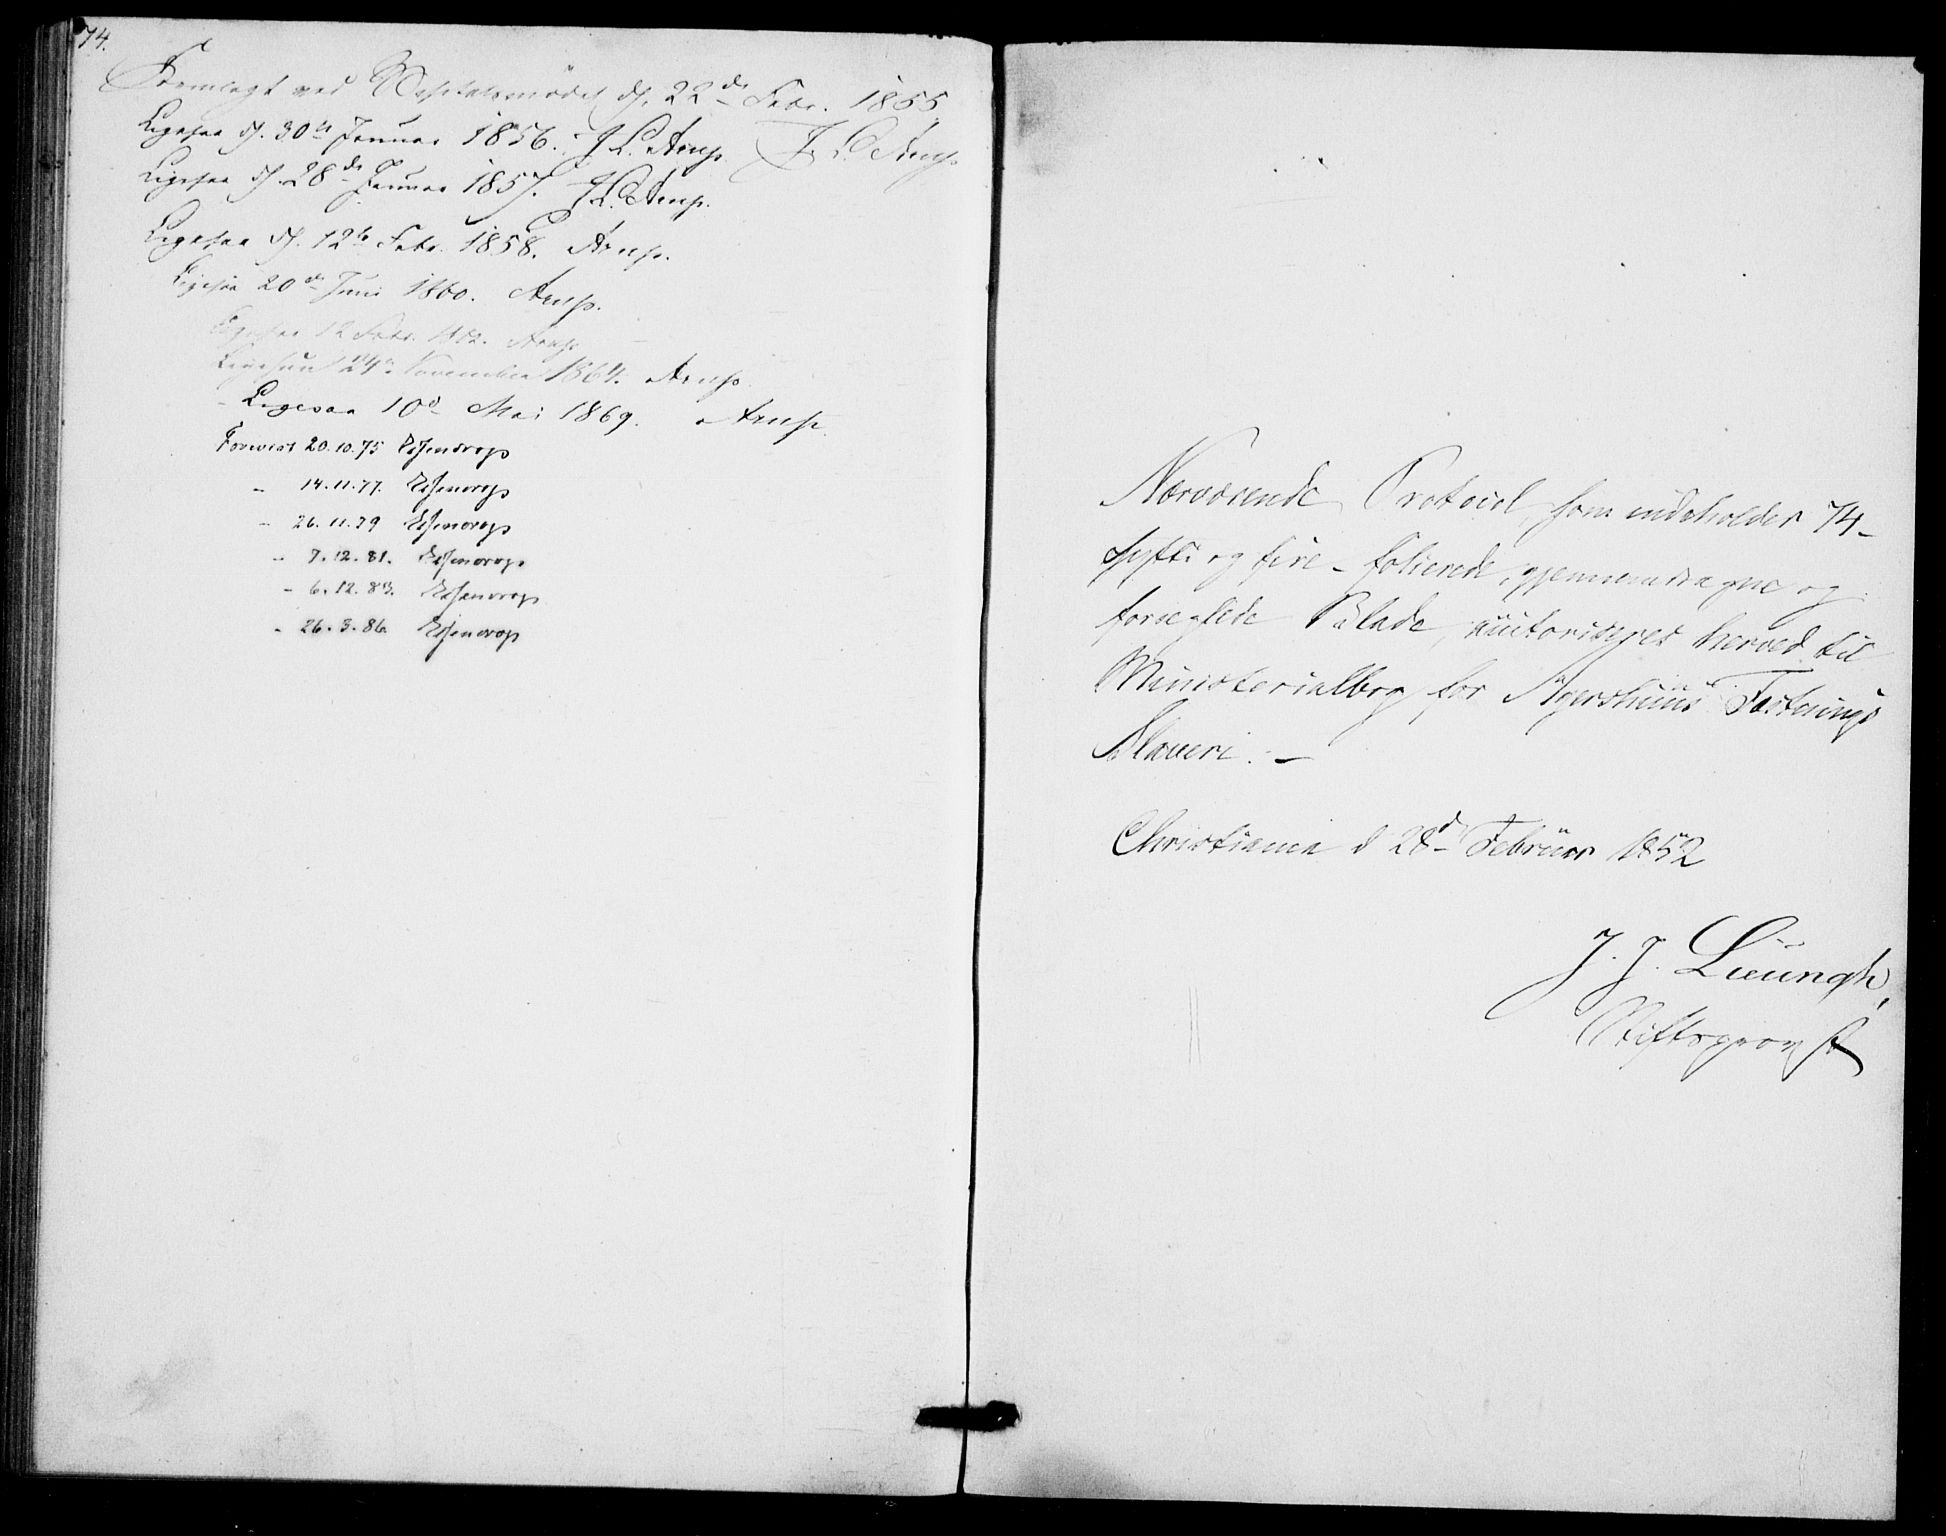 74.
Fremlagt ved Capitelsmödet d. 22de Febr. 1855.
J. L. Arup
Ligesaa d. 30te Januar 1856. J L. Arup
Ligesaa d. 28de Januar 1857. J L. Arup.
Ligesaa d. 12te Febr. 1858. Arup.
Ligesaa 20de Juni 1860. Arup.
Ligesaa 12 Febr. 1862. Arup
Ligesaa 24de November 1864. Arup.
Ligesaa 10d Mai 1869. Arup.
Forevist 20.10.75 Essendrop
" 14.11.77. Essendrop
" 26.11.79 Essendrop
" 7.12.81. Essendrop
" 6.12.83. Essendrop
" 26.3.86. Essendrop
Nærværende Protocol, som indeholder 74-
sytti og fire - folierede, gjennemdragne og
forseglede Blade, autoriseres herved til
Ministerialbog for Agershuus Fæstnings
Slaveri. —
Christiania d 28d Februar 1852
J. J. Luungh,
Stiftsprovst